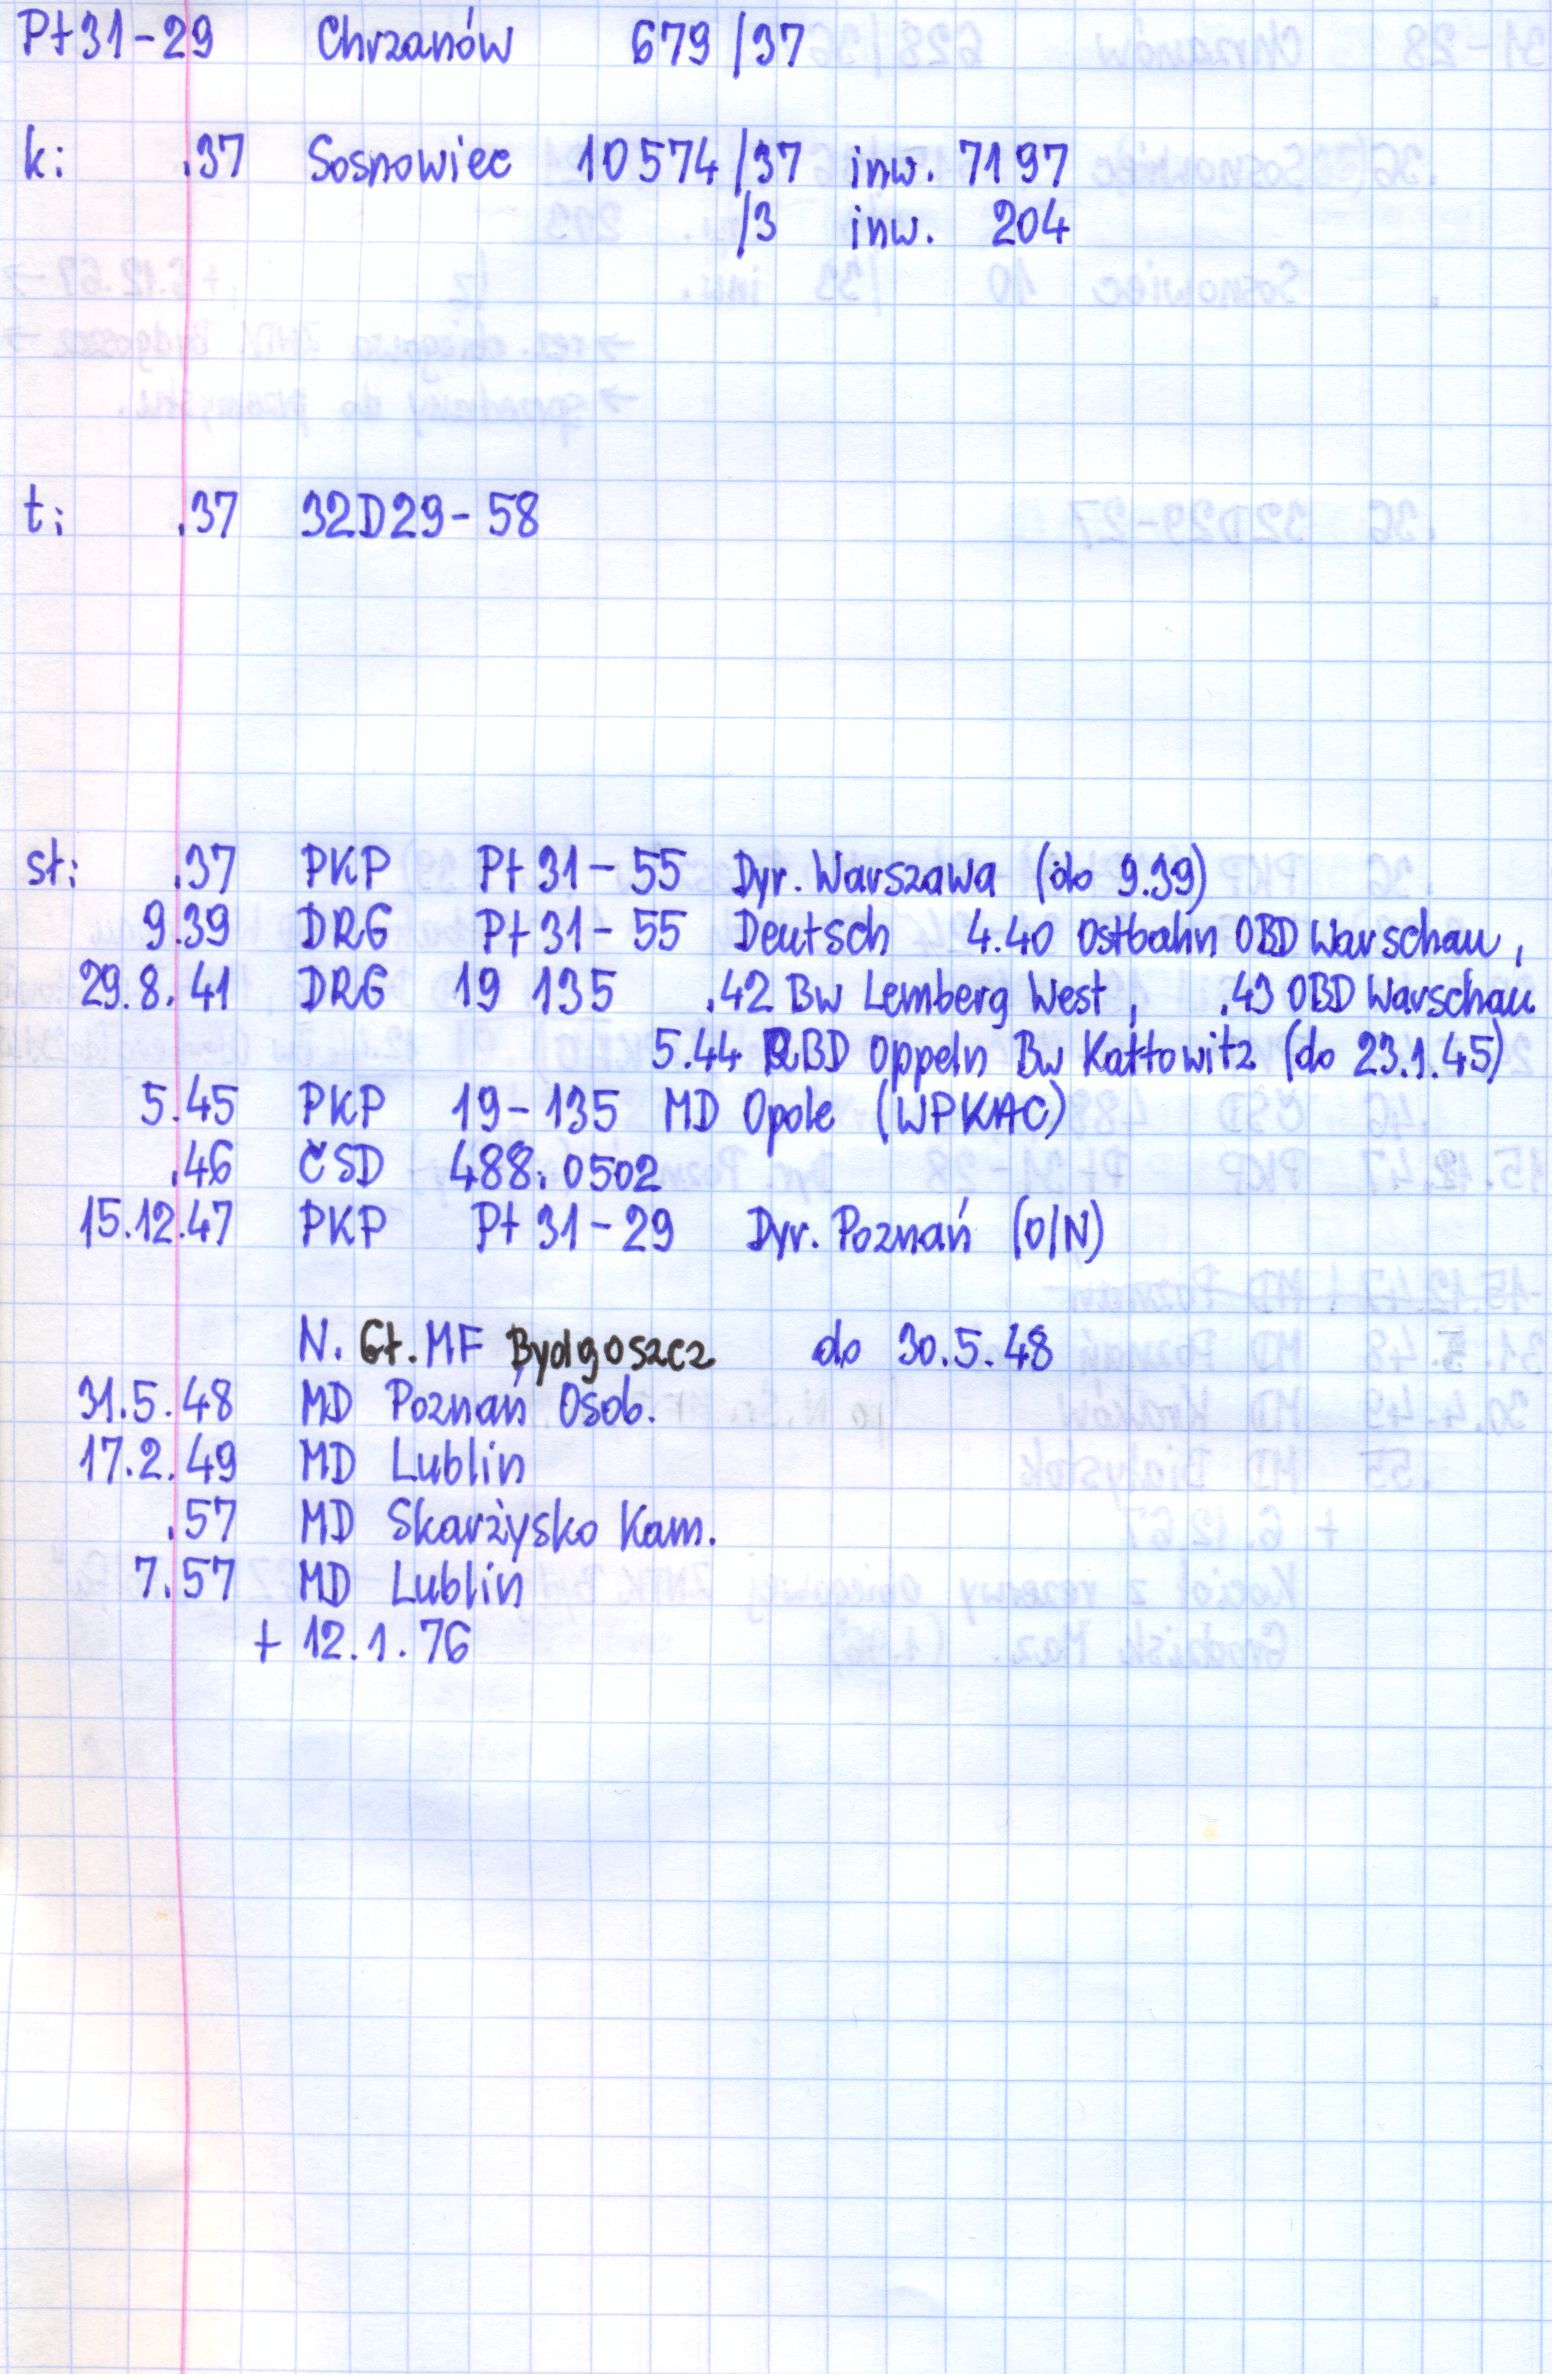 Pt31-29 Chrzanów 679/37
k: .37 Sosnowiec 10574/37 inw. 7197
/3 inw. 204
t: .37 32D29-58
sł: .37 PKP Pt31-55 Dyr. Warszawa (do 9.39)
9.39 DRG Pt31-55 Deutsch 4.40 Ostbahn OBD Warschau,
29.8.41 DRG 19 135 .42 Bw Lemberg West, .43 OBD Warschau
5.44 RBD Oppeln Bw Kattowitz (do 23.1.45)
5.45 PKP 19-135 MD Opole (WPKAC)
.46 ČSD 488.0502
15.12.47 PKP Pt31-29 Dyr. Poznań (O/N)
N. Gł. MF Bydgoszcz do 30.5.48
31.5.48 MD Poznań Osob.
17.2.49 MD Lublin
.57 MD Skarżysko Kam.
7.57 MD Lublin
+ 12.1.76